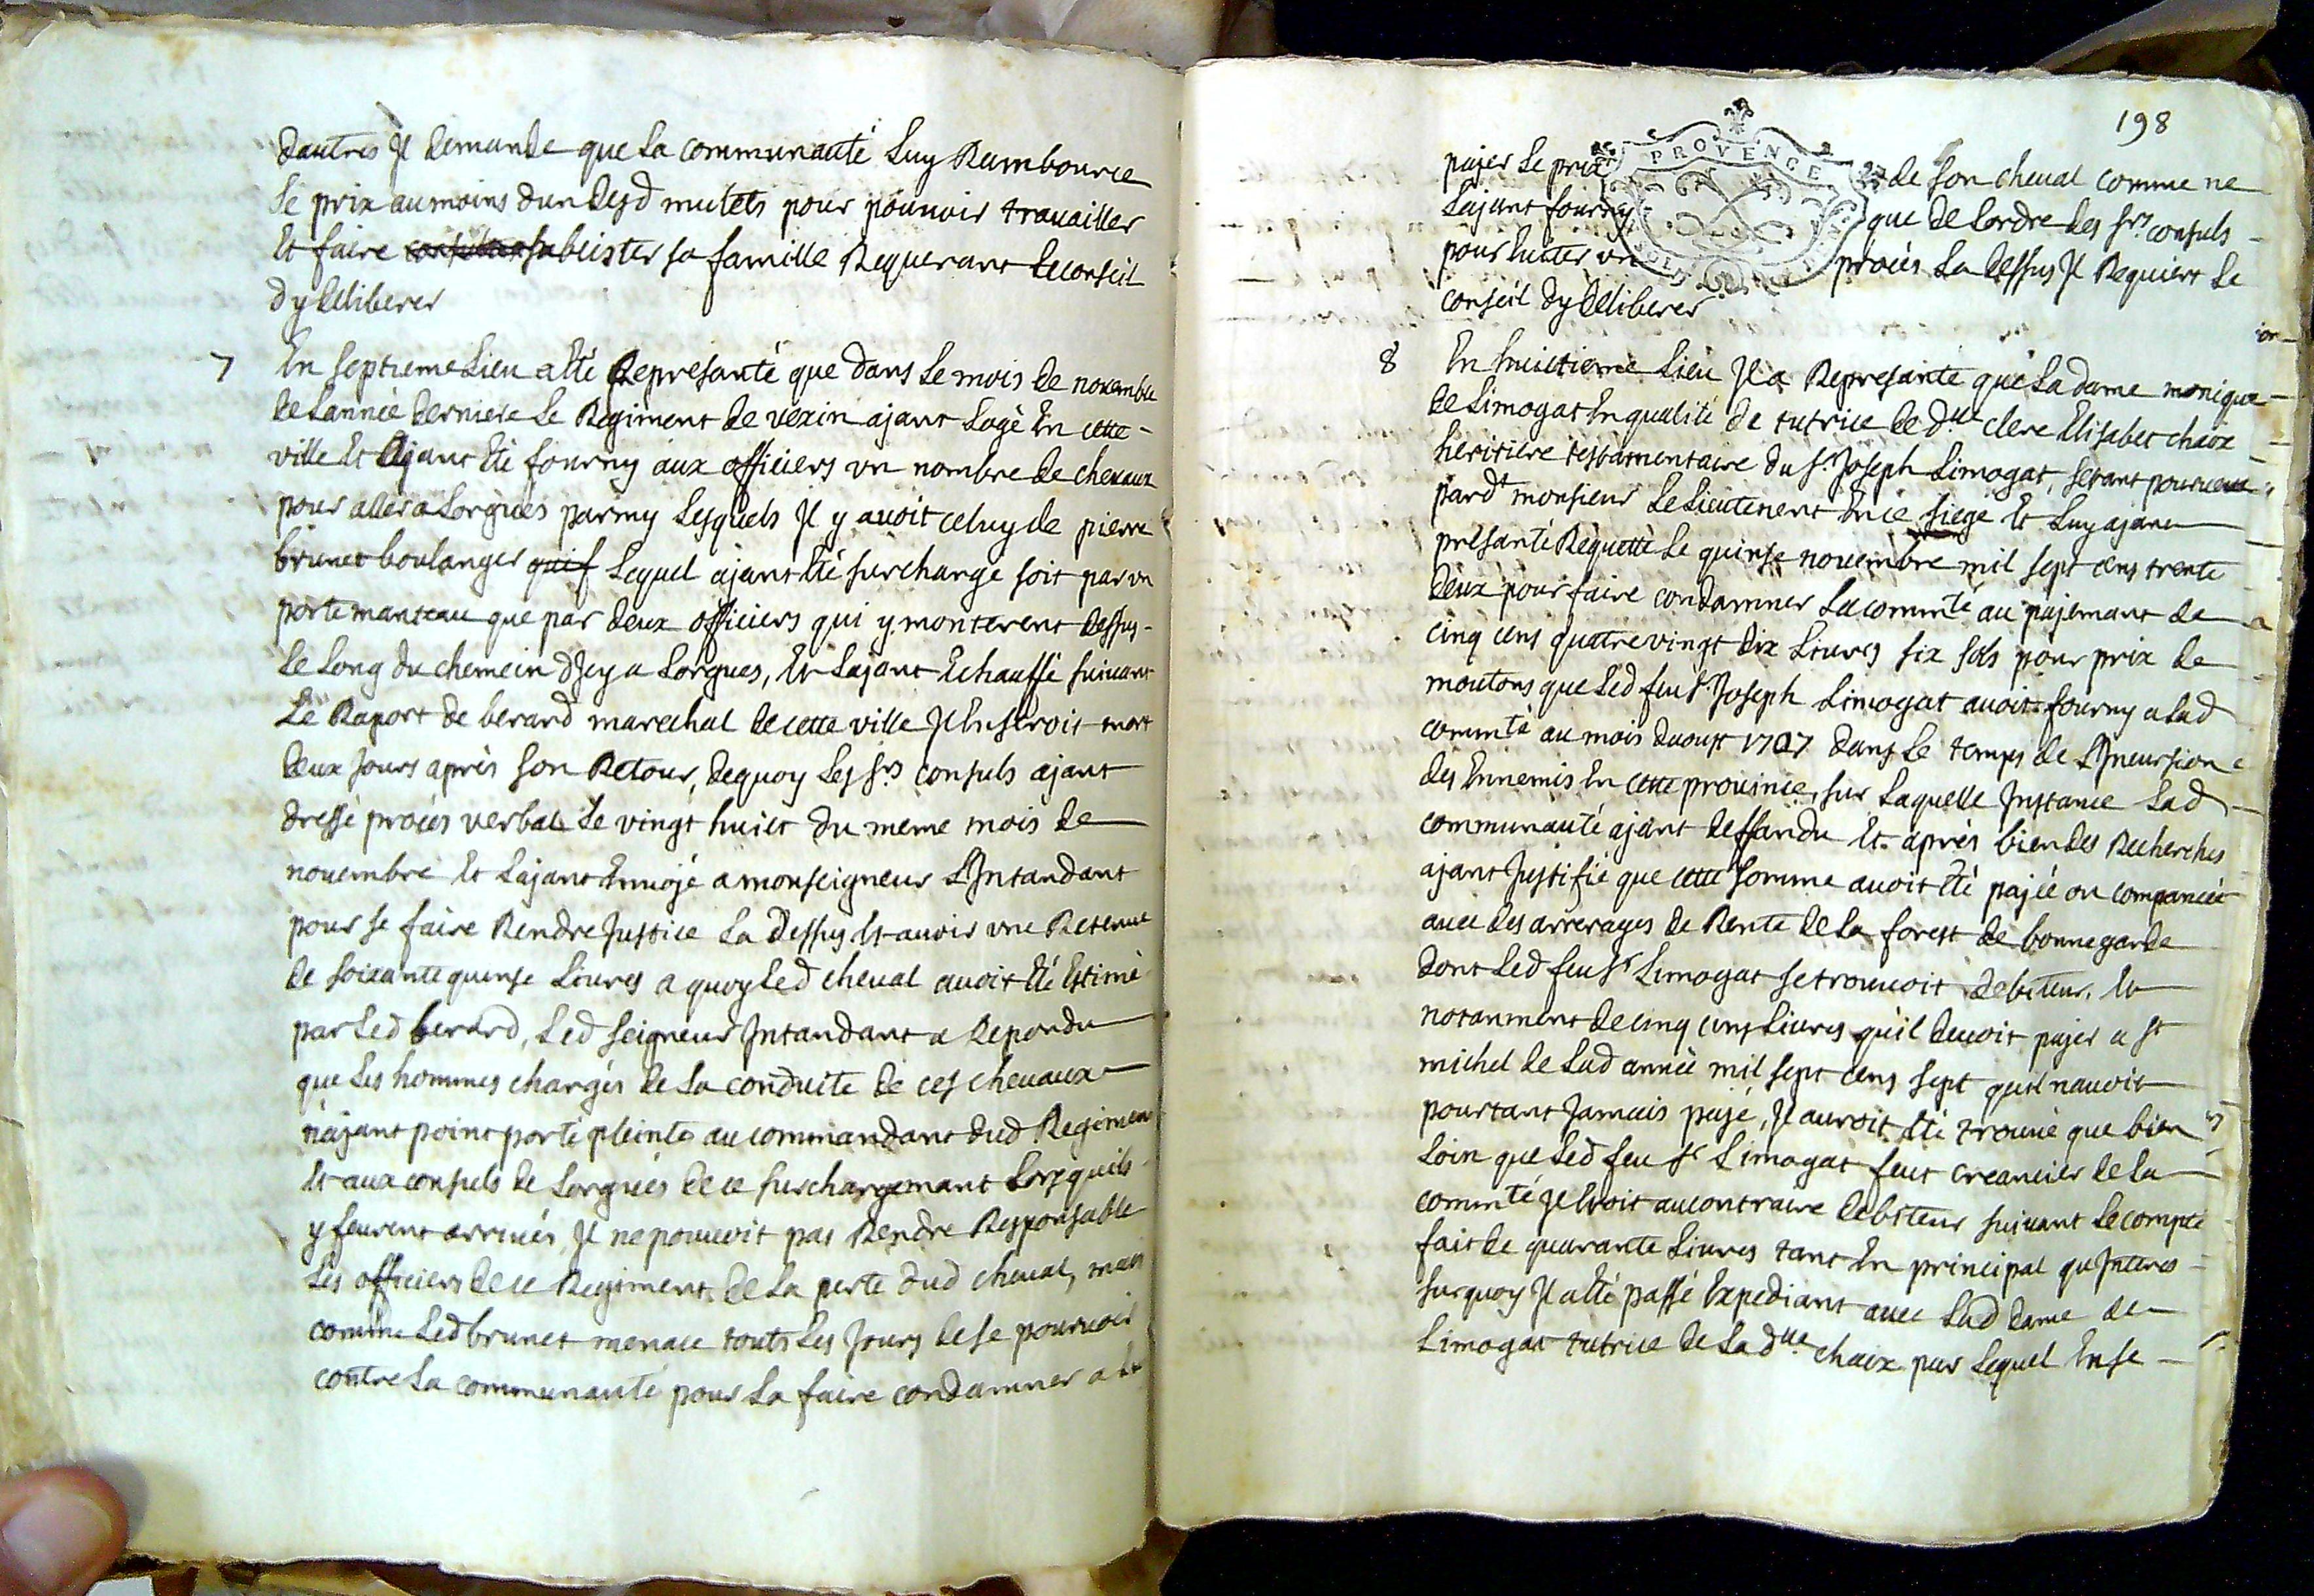 dautres Jl demande que La communauté Luy Rambource
Le prix aumoins dun desd mulets pour pouvoir travailler
Et faire subcister sa famille Requerant Le conseil
dy deliberer
7 En septieme Lieu a été Represanté que dans Le mois de novembre
de Lannéé derniere Le Regiment de vexin ajant Logé En cette
ville Et ajant été fourny aux officiers vn nombre de chevaux
pour aller a Lorgues parmy Lesquels Jl y avoit celuy de pierre
brunet boulanger quif Lequel ajant été surchargé soit par vn
porte manteau que par deux officiers qui y monterent dessus
Le Long du chemein dJcy a Lorgues, Et Lajant Echauffé suivant
Le Raport de berard marechal de cette ville Jl En seroit mort
deux Jours aprés son Retour, dequoy Les srs consuls ajant
dressé procés verbal Le vingt huict du meme mois de
novembre Et Lajant Envojé a monseigneur LJntandant
pour se faire Rendre Justice La dessus Et avoir vne Retenue
de soixante quinse Livres a quoy Led cheval avoit été Estimé
par Led berard, Led seigneur Jntandant a Repondu
que Les hommes chargés de La conduite de ces chevaux
n'ajant point porté pleinte au commandant dud Regiment
Et aux consuls de Lorgues de ce surchargemant Lorsquils
y feurent arrivés, Jl ne pouvoit pas Rendre Responsable
Les officiers de ce Regiment de La perte dud cheval, mais
comme Led brunet menace touts Les Jours de se pourvoir
contre La communauté pour La faire condamner a Luy
198
PROVENCE
pajer Le prix de son cheval comme ne
Lajant fourny que de Lordre des srs consuls
pour Eviter vn procés La dessus Jl Requiert Le
conseil dy deliberer
8 En huictieme Lieu Jl a Represanté que La dame monique
de Limogat En qualité de tutrice de dlle clere Elisabet chaix
heritiere testamentaire du sr Joseph Limogat, setant pourveue
pardt monsieur Le Lieutenent En ce siege Et Luy ajant
présanté Requette Le quinse novembre mil sept cens trente
deux pour faire condamner La commté au pajemant de
cinq cens quatre vingt dix Livres six sols pour prix de
moutons que Led feu sr Joseph Limogat avoit fourny a Lad
commté au mois daoust 1707 dans Le temps de LJncursion
des Ennemis En cette province, sur Laquelle Jnstance Lad
communauté ajant deffandu Et aprés bien des Recherches
ajant Justifié que cette somme avoit été pajéé ou compancéé
avec des arrerages de Rente de La forest de bonnegarde
dont Led feu sr Limogat se trouvoit debiteur, Et
notanment de cinq cens Livres qu'il devoit pajer a st
michel de Lad annéé mil sept cens sept quil navoit
pourtant Jamais pajé, Jl auroit été trouvé que bien
Loin que Led feu sr Limogat feut creancier de La
commté Jl Etoit au contraire debiteur suivant Le compte
fait de quarante Livres tant En principal qu Jnteres
surquoy Jl a été passé Expediant avec Lad dame de
Limogat tutrice de Lad dlle chaix par Lequel En se